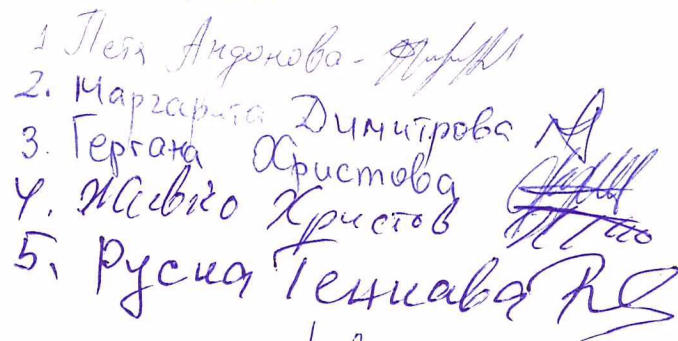 1 Петя Андонова -
2. Маргарита Димитрова
3. Гергана Христова
4. Живко Христов
5. Руска